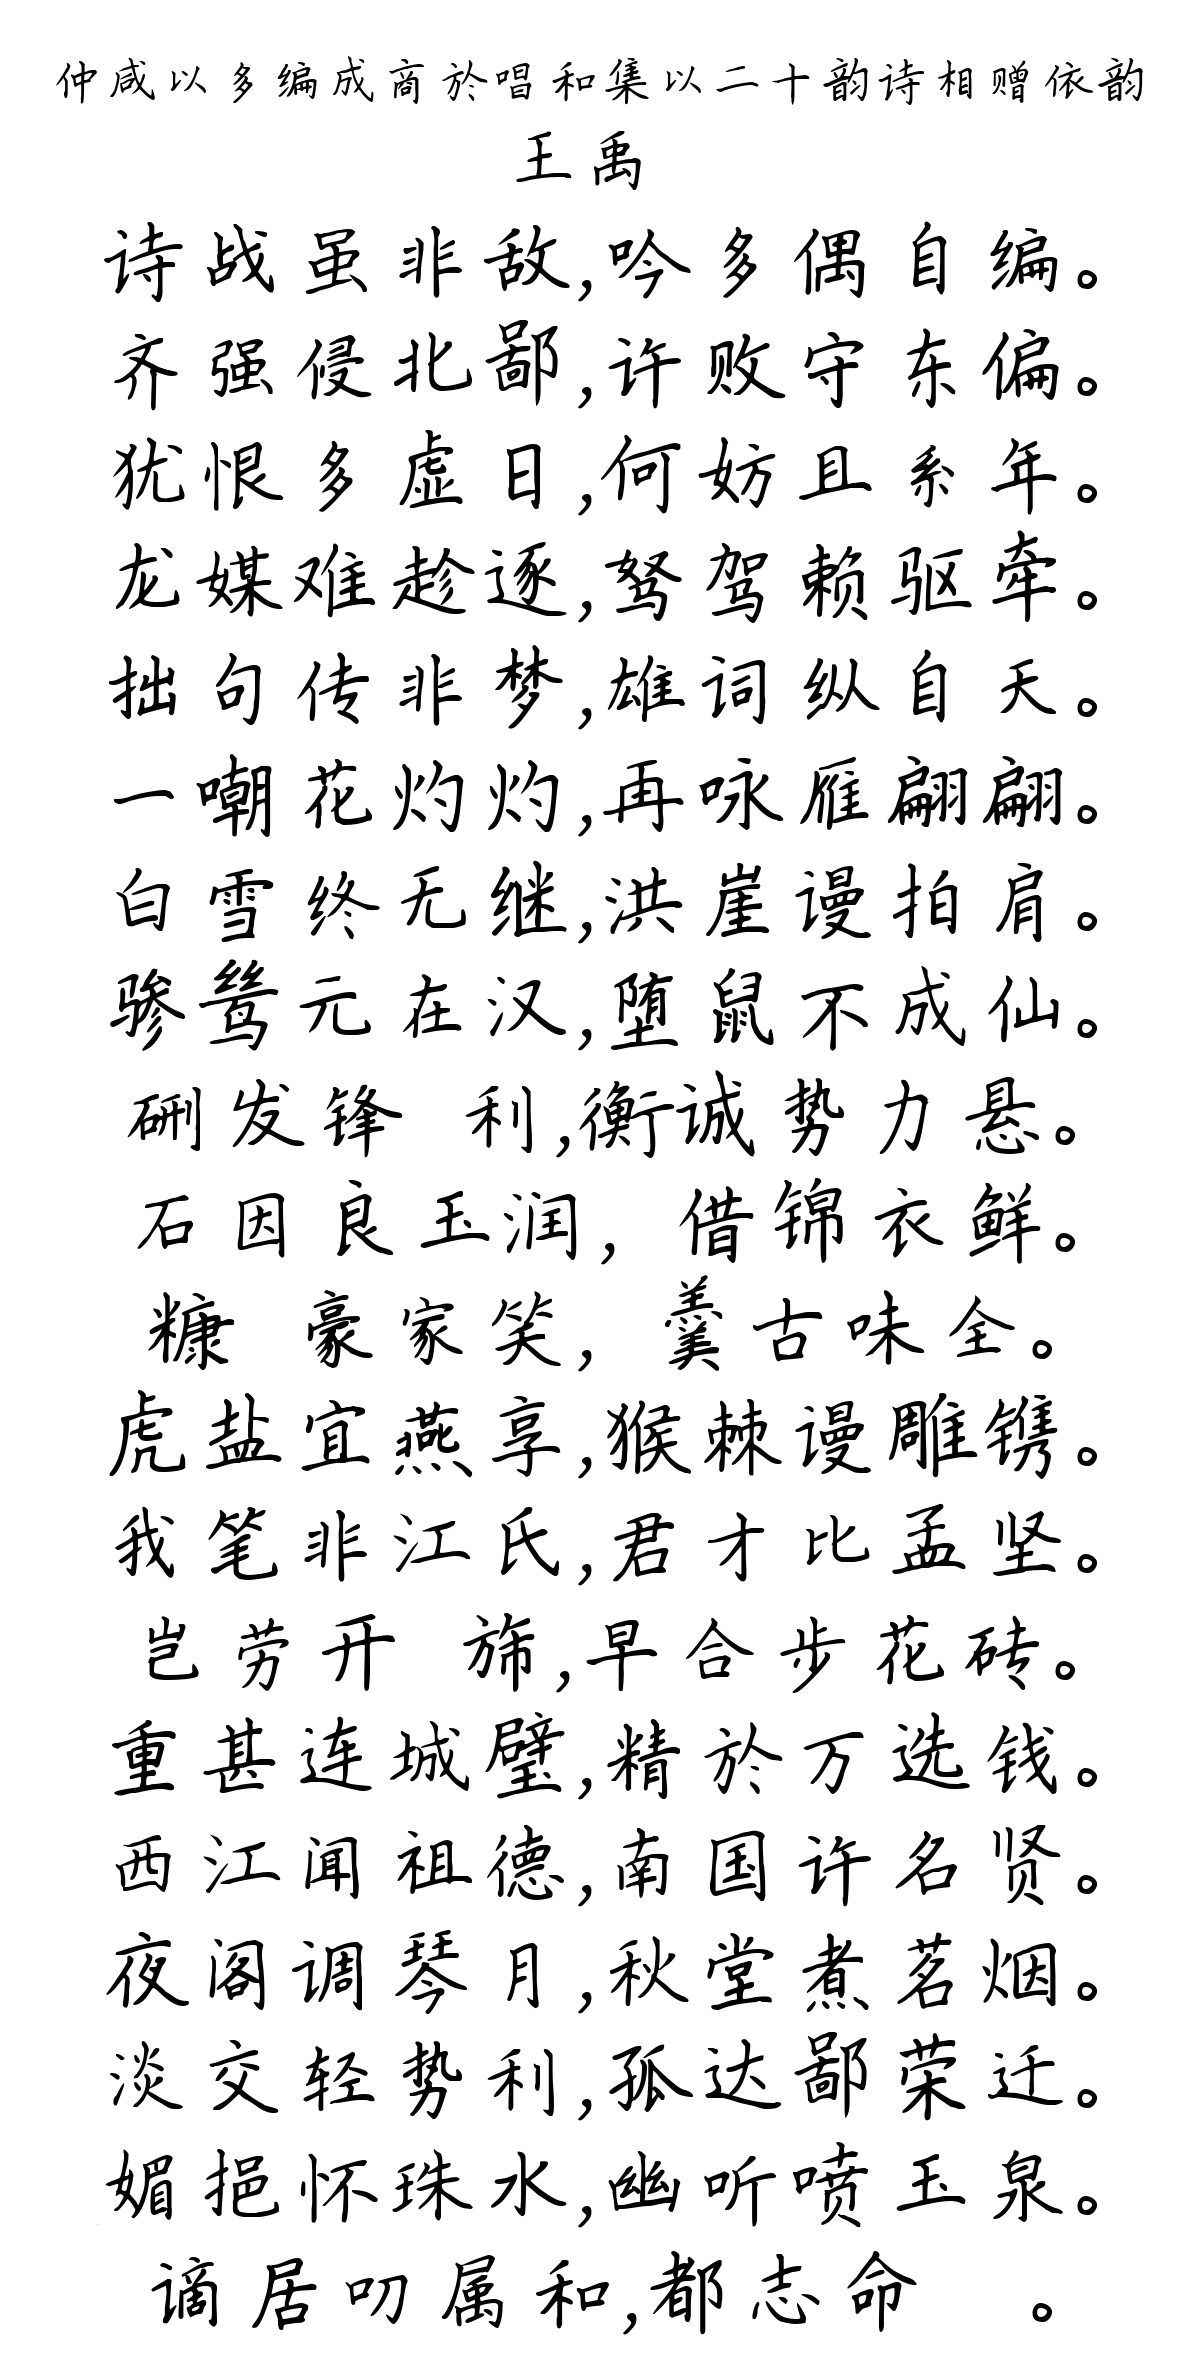 仲咸以多编成商於唱和集以二十韵诗相赠依韵
王禹
诗战虽非敌,吟多偶自编。
齐强侵北鄙,许败守东偏。
犹恨多虚日,何妨且系年。
龙媒难趁逐,驽驾赖驱牵。
拙句传非梦,雄词纵自天。
一嘲花灼灼,再咏雁翩翩。
白雪终无继,洪崖谩拍肩。
骖鸶元在汉,堕鼠不成仙。
硎发锋 利,衡诚势力悬。
石因良玉润, 借锦衣鲜。
糠 豪家笑, 羹古味全。
虎盐宜燕享,猴棘谩雕镌。
我笔非江氏,君才比孟坚。
岂劳开 旆,早合步花砖。
重甚连城璧,精於万选钱。
西江闻祖德,南国许名贤。
夜阁调琴月,秋堂煮茗烟。
淡交轻势利,孤达鄙荣迁。
媚挹怀珠水,幽听喷玉泉。
谪居叨属和,都志命 。